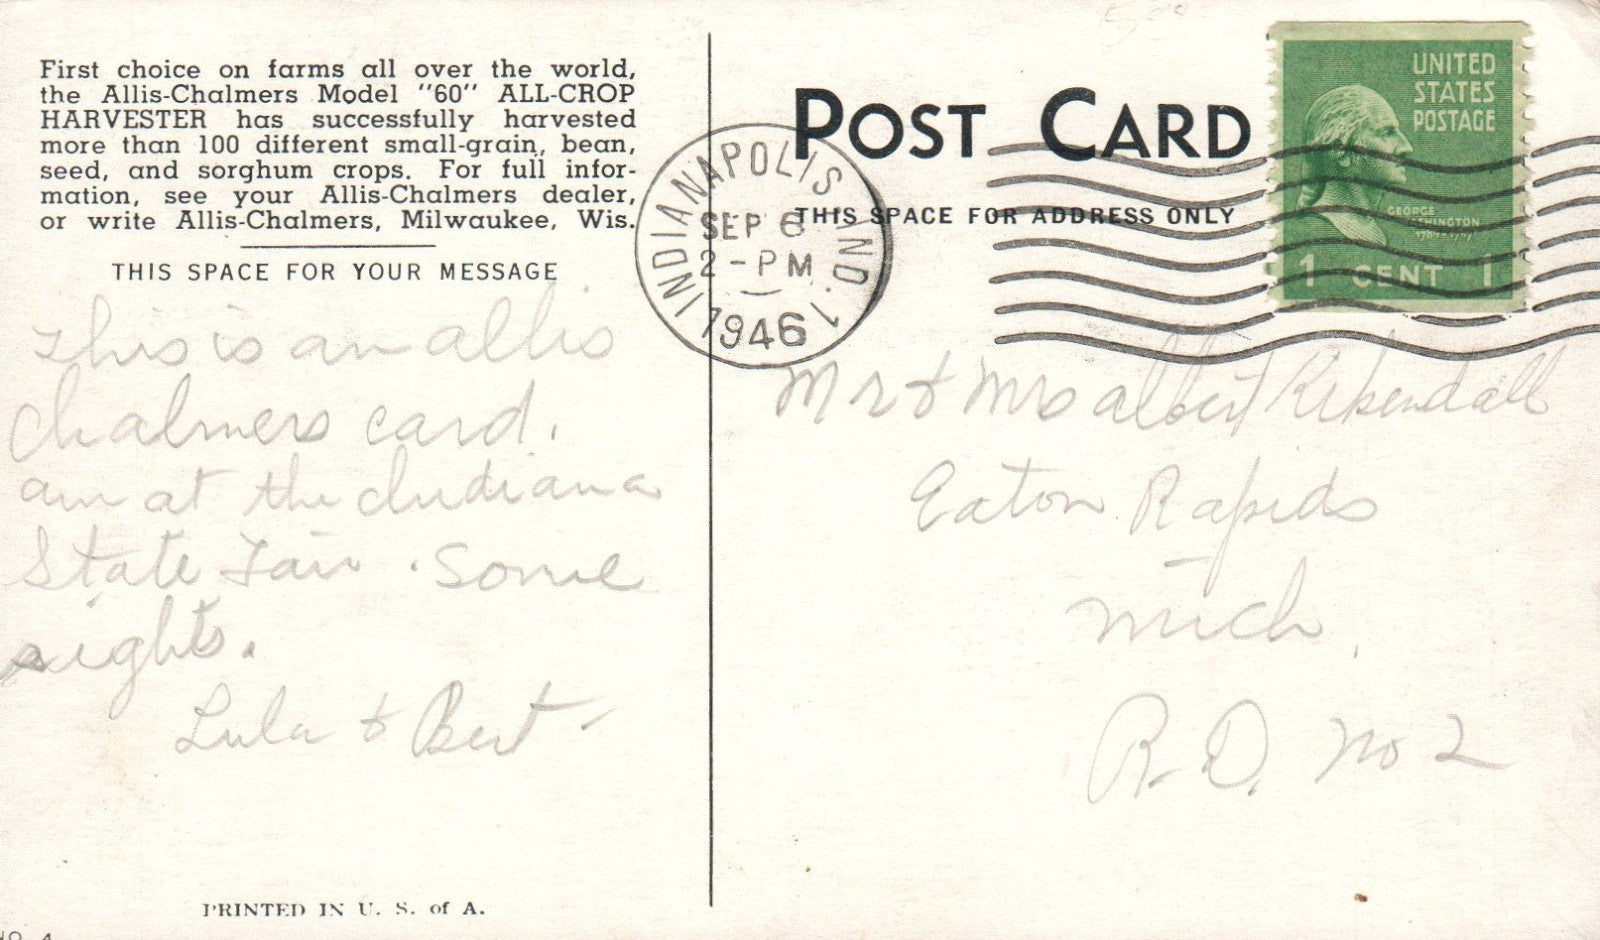 First choice on farms all over the world,
the Allis-Chalmers Model "60" ALL-CROP
HARVESTER has successfully harvested
more than 100 different small-grain, bean,
seed, and sorghum crops. For full infor-
mation, see your Allis-Chalmers dealer,
or write Allis-Chalmers, Milwaukee, Wis.
THIS SPACE FOR YOUR MESSAGE
This is an allis
Chalmers card.
am at the Indiana
State Fair. Some
sights.
Lula & Bert
PRINTED IN U. S. of A.
NO. 4
POST CARD
THIS SPACE FOR ADDRESS ONLY
INDIANAPOLIS IND. 1
SEP 6
2-PM
1946
UNITED
STATES
POSTAGE
GEORGE
WASHINGTON
1 CENT 1
Mr & Mrs Albert
Eaton Rapids
Mich.
R.D. No 2